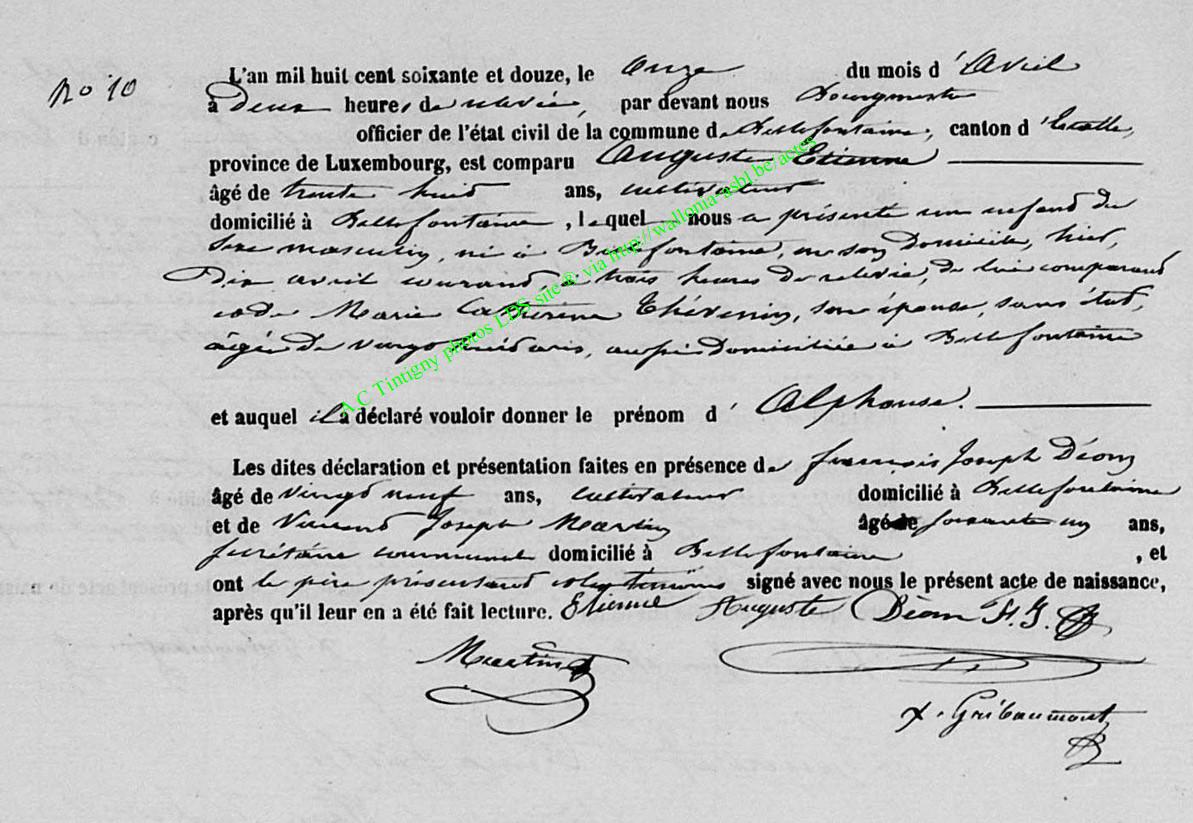 No 10
L'an mil huit cent soixante et douze, le onze du mois d'Avril
à Deux heures de relevée, par devant nous Bourgmestre
officier de l'état civil de la commune de Bellefontaine, canton d'Etalle,
province de Luxembourg, est comparu Auguste Etienne
âgé de trente huit ans, cultivateur
domicilié à Bellefontaine, lequel nous a présenté un enfant de
sexe masculin, né à Bellefontaine, en son Domicile, hier,
Dix avril courant, à trois heures de relevée, de lui comparant
et de Marie Catherine Thévenin, son épouse, sans état,
âgée de vingt huit ans, aussi domiciliée à Bellefontaine
et auquel il a déclaré vouloir donner le prénom d'Alphonse.
Les dites déclaration et présentation faites en présence de françois Joseph Déom
âgé de vingt neuf ans, cultivateur domicilié à Bellefontaine
et de Vincent Joseph Martin âgé de soixante un ans,
secrétaire communal domicilié à Bellefontaine, et
ont le père présentant et les témoins signé avec nous le présent acte de naissance,
après qu'il leur en a été fait lecture. Etienne Auguste Déom F. J.
Martin
x. Gribaumont
A.C Tintigny photos LDS site @ via http://wallonia-asbl.be/actes